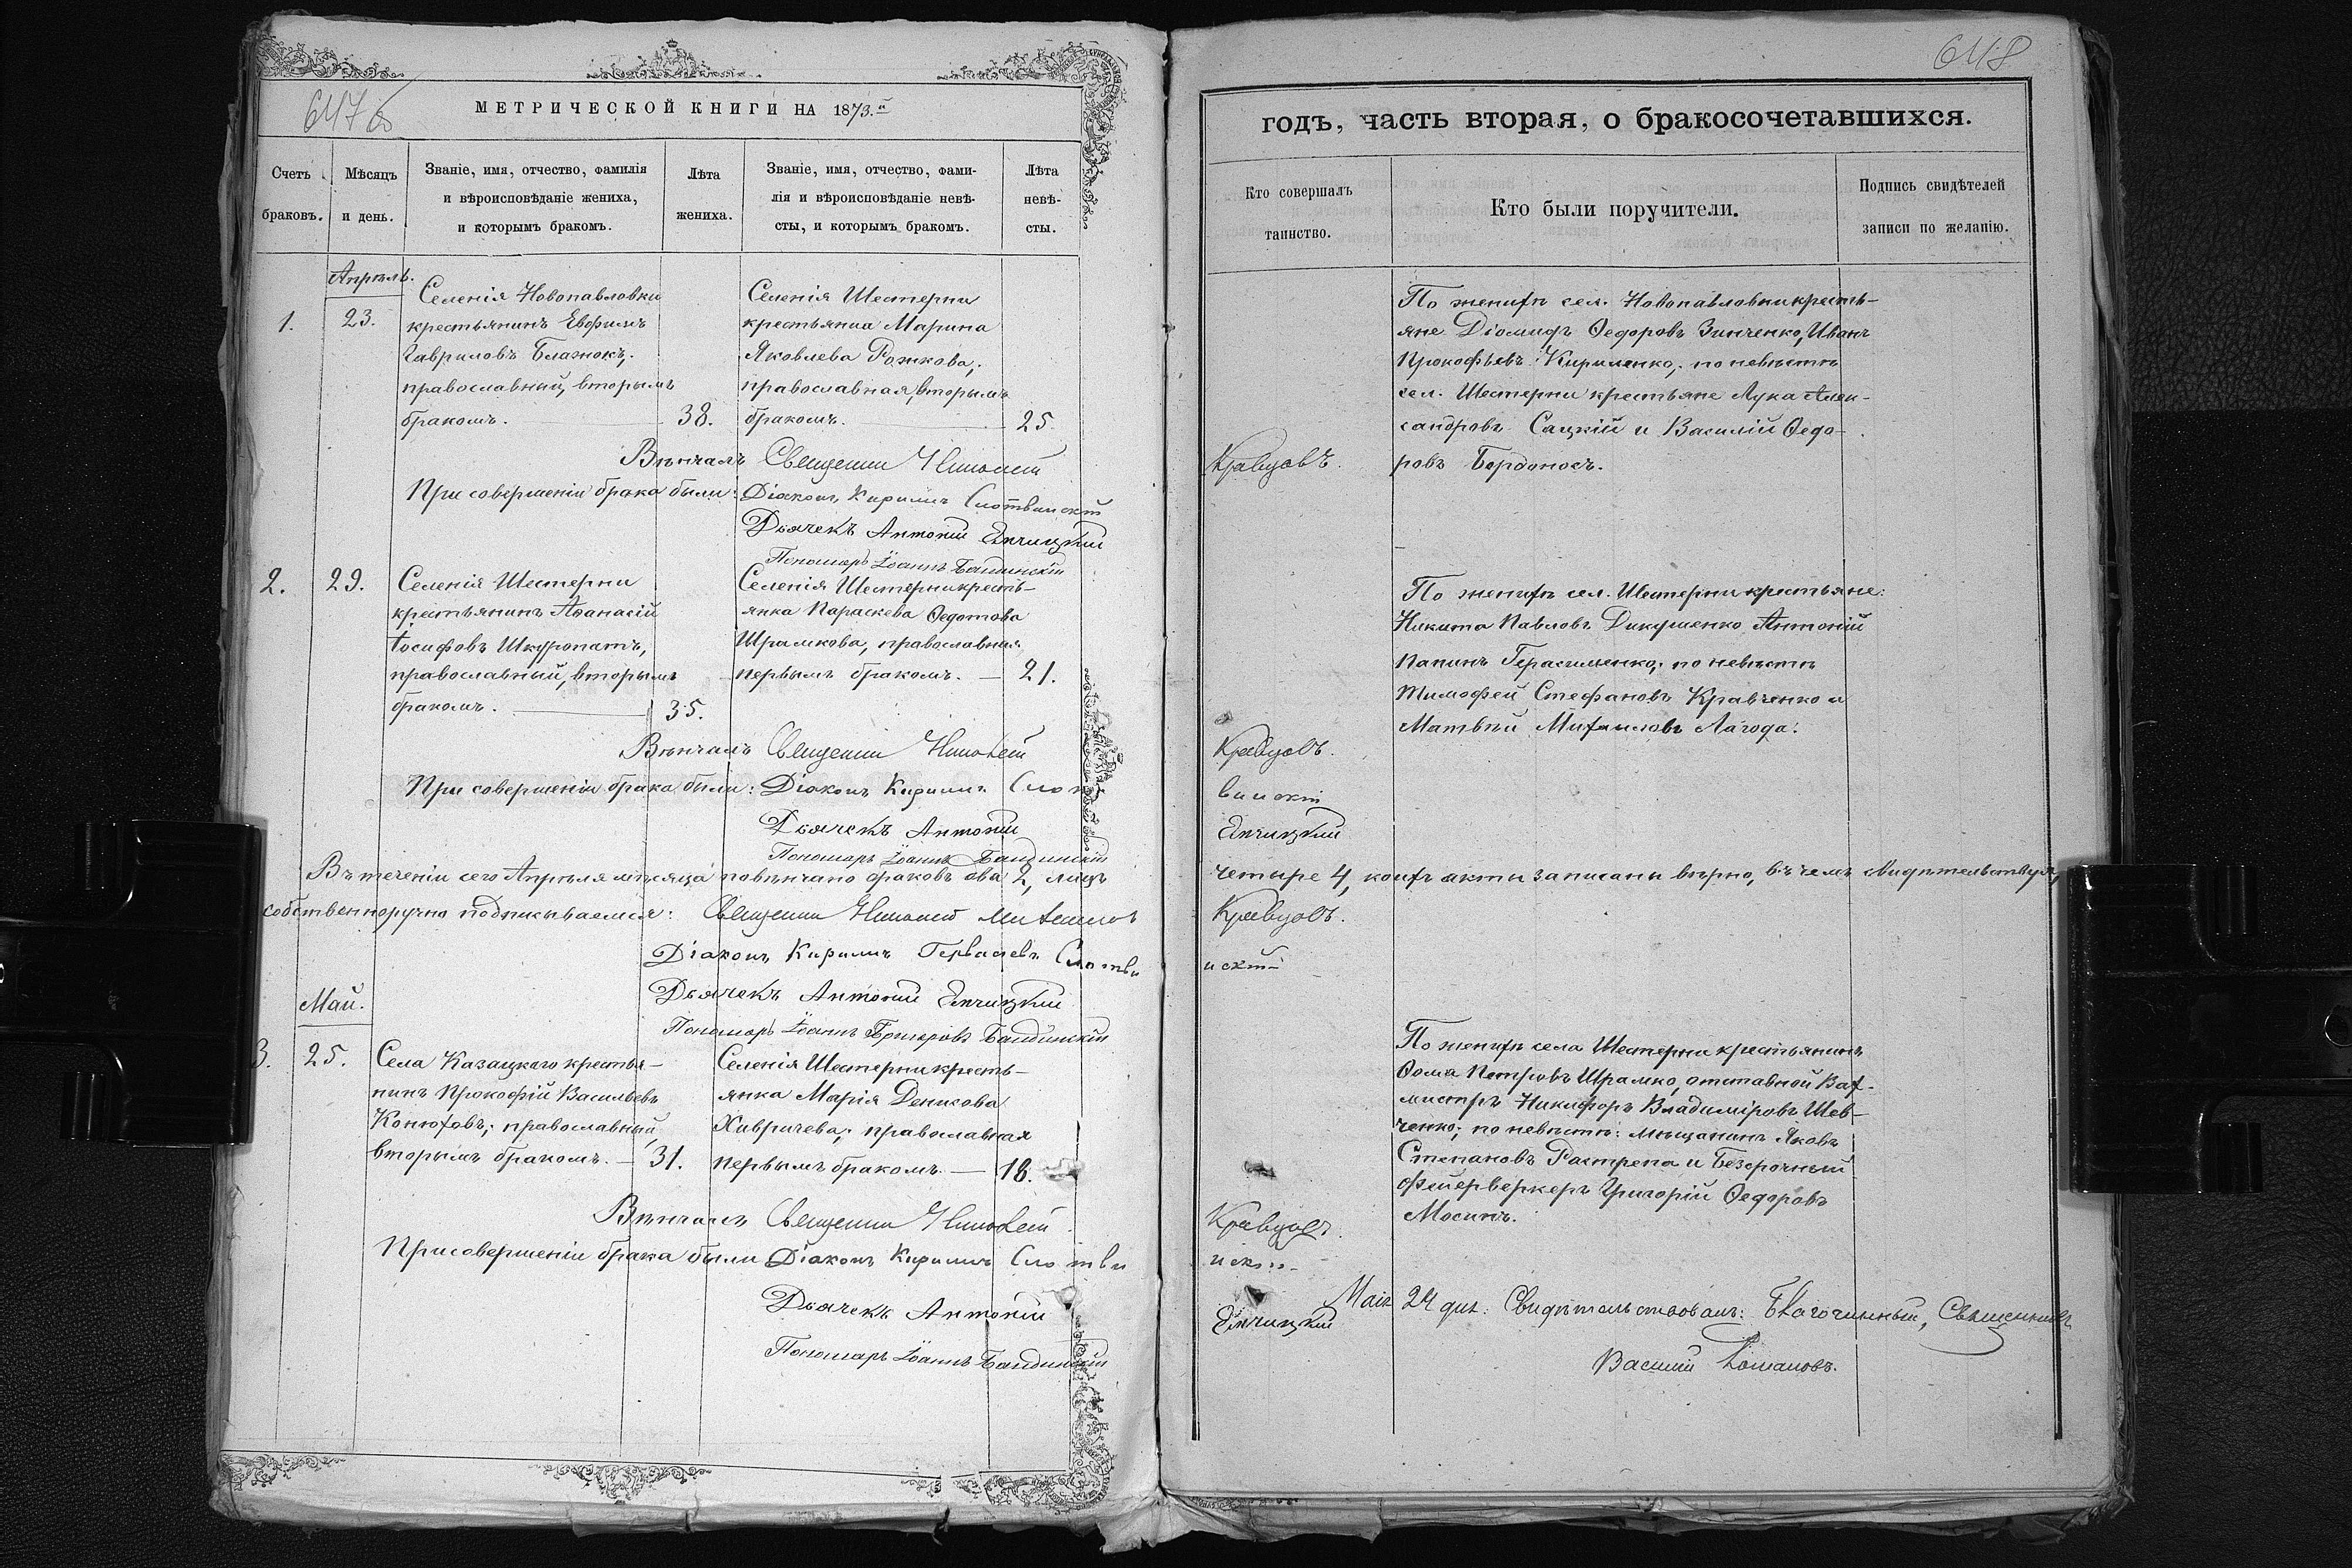 647 б
МЕТРИЧЕСКОЙ КНИГИ НА 1873.й
Счетъ браковъ.
Мѣсяцъ и день.
Званіе, имя, отчество, фамилія
и вѣроисповѣданіе жениха,
и которымъ бракомъ.
Лѣта
жениха.
Званіе, имя, отчество, фами-
лія и вѣроисповѣданіе невѣ-
сты, и которымъ бракомъ.
Лѣта
невѣ-
сты.
Апрѣль.
1.
23.
Селенія Новопавловки
крестьянинъ Евфимъ
Гавриловъ Блажокъ;
православный, вторымъ
бракомъ.
38.
Селенія Шестерни
крестьянка Марина
Яковлева Рожкова;
православная, вторымъ
бракомъ.
25
Вѣнчалъ Священни Николай
При совершеніи брака были: Діаконъ Кириллъ Слотвинскій
Дьячекъ Антоній
Пономарь Іоаннъ
2.
29.
Селенія Шестерни
крестьянинъ Аѳанасій
Іосифовъ Шкуропатъ,
православный, вторымъ
бракомъ.
35.
Селенія Шестерни кресть-
янка Параскева Ѳедотова
Шрамкова, православная
первымъ бракомъ.
21.
Вѣнчалъ Священни Николай
При совершеніи брака были: Діаконъ Кириллъ Слот
Дьячекъ Антоній
Пономарь Іоаннъ
Въ теченіи сего Апрѣля мѣсяца повѣнчано браковъ два 2, лицъ
собственноручно подписываемся: Священни Николай Михаилов
Діаконъ Кириллъ Гервасіевъ Слотви
Дьячекъ Антоній
Пономарь Іоаннъ
Май.
3.
25.
Села Казацкаго крестья-
нинъ Прокофій Васильевъ
Конюховъ; православный,
вторымъ бракомъ.
31.
Селенія Шестерни кресть-
янка Марія Денисова
Хавричева; православная
первымъ бракомъ.
18.
Вѣнчалъ Священни Николай
При совершеніи брака были Діаконъ Кириллъ Слотви
Дьячекъ Антоній
Пономарь Іоаннъ
648
годъ, часть вторая, о бракосочетавшихся.
Кто совершалъ
таинство.
Кто были поручители.
Подпись свидѣтелей
записи по желанію.
По женихѣ сел. Новопавловки кресть-
яне Діомидъ Ѳедоровъ Зинченко, Иванъ
Прокофьевъ Кириленко; по невѣстѣ
сел. Шестерни крестьяне Лука Алек-
сандровъ Сацкій и Василій Ѳедо-
ровъ Бордоносъ.
Кравцовъ.
По женихѣ сел. Шестерни крестьяне:
Никита Павловъ Дикушенко Антоній
Герасименко; по невѣстѣ
Тимофей Стефановъ Кравченко и
Матвѣй Михаиловъ Лагода.
Кравцовъ.
винскій
четыре 4, коихъ акты записаны вѣрно, въ чемъ свидѣтельствуя,
Кравцовъ.
нскій
По женихѣ села Шестерни крестьянинъ
Ѳома Петровъ Шрамко, отставной Вах-
мистръ Никифоръ Владиміровъ Шев-
ченко; по невѣстѣ: мѣщанинъ Яковъ
Степановъ Растрепа и Безсрочный
фейерверкеръ Григорій Ѳедоровъ
Мосинъ.
Кравцовъ.
нскій
Маія 24 дня. Свидѣтельствовалъ: Благочинный, Священникъ
Василій Романовъ.